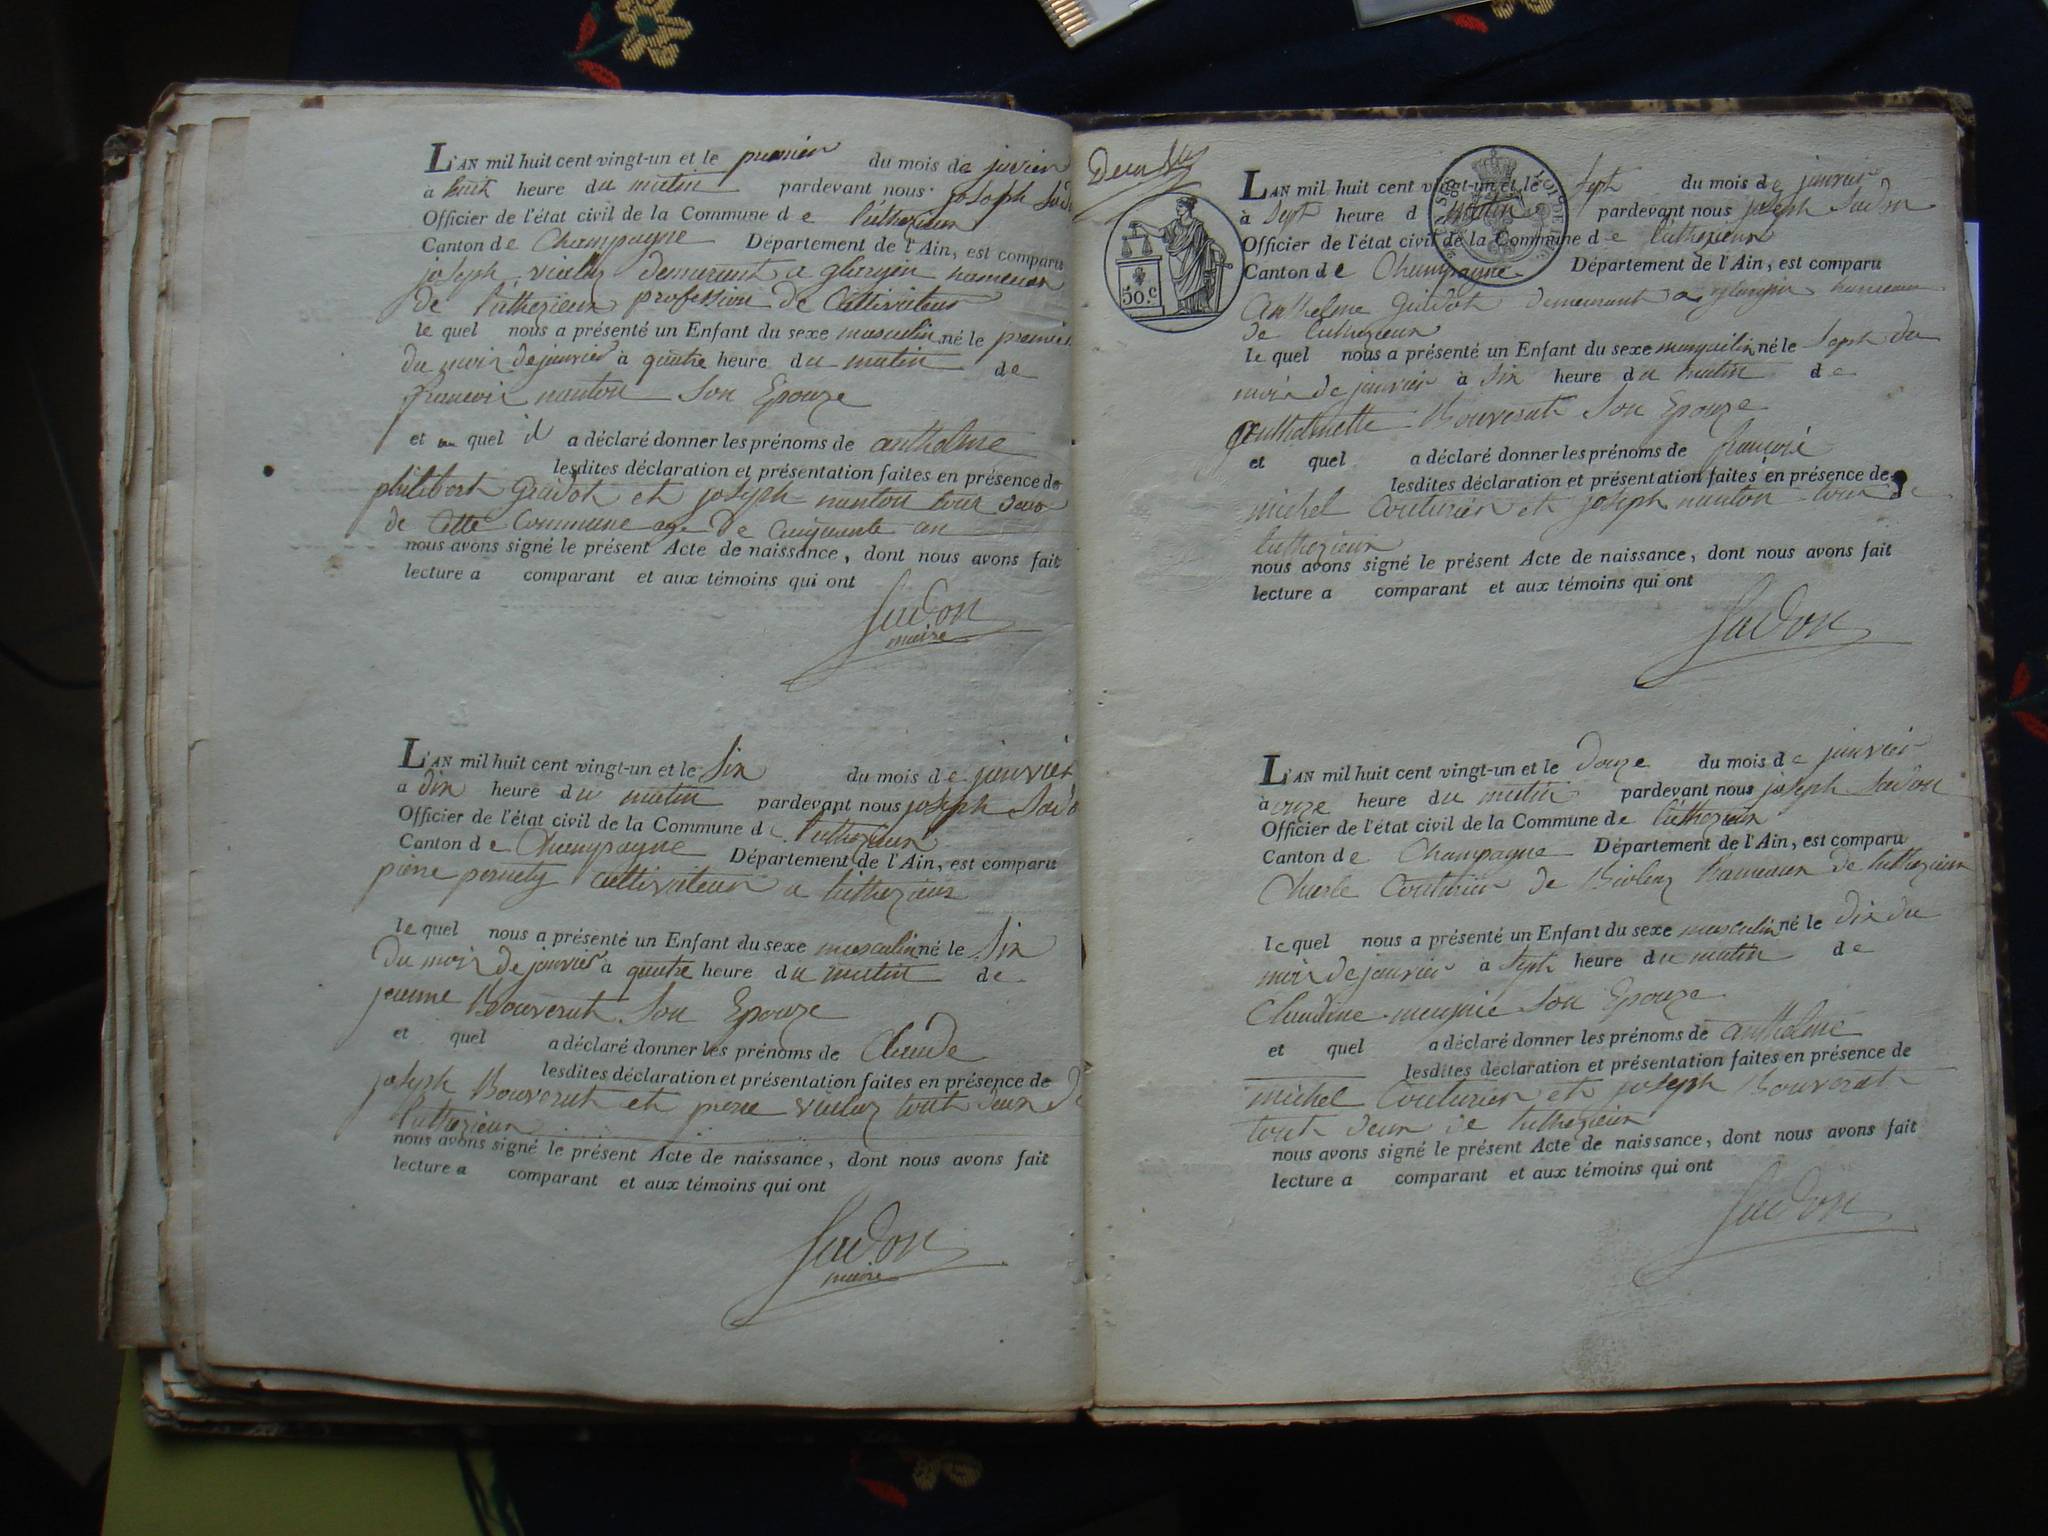 L'AN mil huit cent vingt-un et le premier du mois de janvier
à huit heure du matin pardevant nous joseph
Officier de l'état civil de la Commune de luthezieux
Canton de Champagne Département de l'Ain, est comparu
joseph vialaz demeurant a hameau
de luthezieux profession de Cultivateur
le quel nous a présenté un Enfant du sexe masculin né le premier
du mois de janvier à quatre heure du matin de
françoise nanton Son Epouze
et au quel il a déclaré donner les prénoms de anthelme
lesdites déclaration et présentation faites en présence de
philibert Guidot et joseph nanton tous deux
de Cette Commune age De Cinquante an
nous avons signé le présent Acte de naissance, dont nous avons fait
lecture a comparant et aux témoins qui ont
Savon
maire
L'AN mil huit cent vingt-un et le Six du mois de janvier
a dix heure du matin pardevant nous joseph
Officier de l'état civil de la Commune de luthezieux
Canton de Champagne Département de l'Ain, est comparu
piere cultivateur a luthezieux
le quel nous a présenté un Enfant du sexe masculin né le Six
du mois de janvier à quatre heure du matin de
jeanne Bouverat Son Epouze
et quel a déclaré donner les prénoms de Claude
lesdites déclaration et présentation faites en présence de
joseph Bouverat et piere vialaz tout deux de
luthezieux
nous avons signé le présent Acte de naissance, dont nous avons fait
lecture a comparant et aux témoins qui ont
Savon
maire
50.C
L'AN mil huit cent vingt-un et le Sept du mois de janvier
à Sept heure d matin pardevant nous joseph Savon
Officier de l'état civil de la Commune de luthezieux
Canton de Champagne Département de l'Ain, est comparu
Anthelme Guidot demeurant a hameau
de luthezieux
le quel nous a présenté un Enfant du sexe né le Sept du
mois de janvier à Six heure du matin de
Bouverat Son Epouze
et quel a déclaré donner les prénoms de
lesdites déclaration et présentation faites en présence de
michel Couturier et joseph nanton tous de
luthezieux
nous avons signé le présent Acte de naissance, dont nous avons fait
lecture a comparant et aux témoins qui ont
Savon
L'AN mil huit cent vingt-un et le Douze du mois de janvier
à onze heure du matin pardevant nous joseph Savon
Officier de l'état civil de la Commune de luthezieux
Canton de Champagne Département de l'Ain, est comparu
Charle Couturier de hameau de luthezieux
le quel nous a présenté un Enfant du sexe masculin né le dix du
mois de janvier à Sept heure du matin de
Claudine Son Epouze
et quel a déclaré donner les prénoms de anthelme
lesdites déclaration et présentation faites en présence de
michel Couturier et joseph Bouverat
tout deux de luthezieux
nous avons signé le présent Acte de naissance, dont nous avons fait
lecture a comparant et aux témoins qui ont
Savon